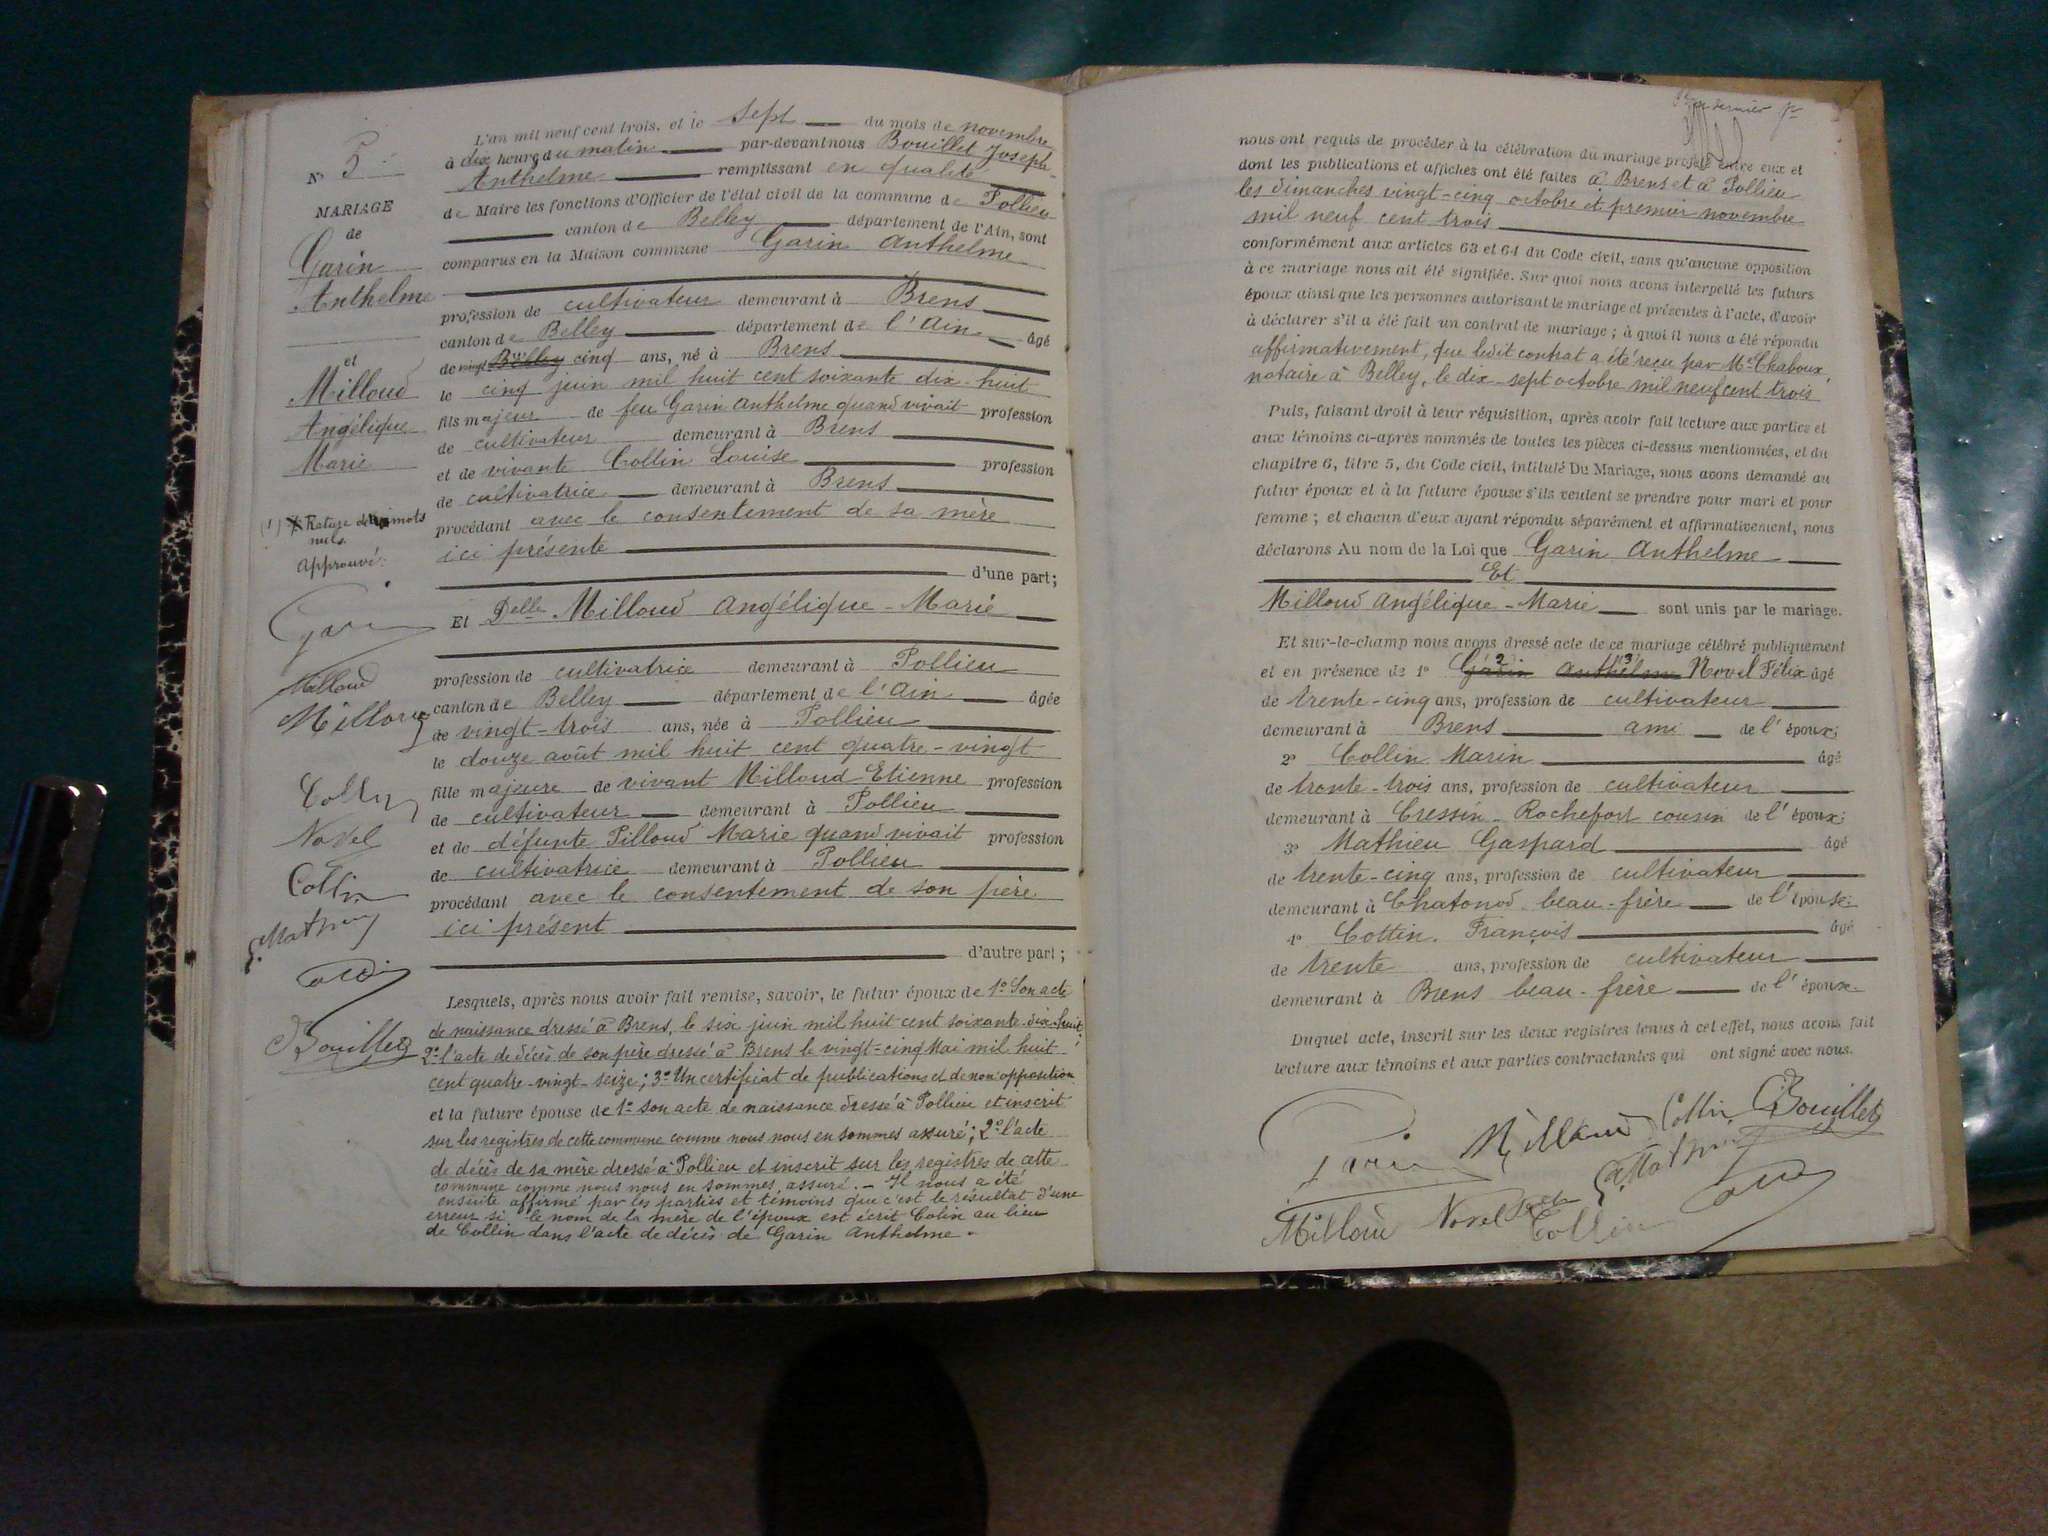 N° 5
MARIAGE
de
Garin
Anthelme
et
Milloud
Angélique
Marie
(1) Rature de mots
nuls.
Approuvé:
Garin
Milloud
Milloud
Collin
Novel
Cottin
Mathieu
Bouillet
L'an mil neuf cent trois, et le sept du mois de novembre
à dix heures du matin par-devant nous Bouillet Joseph-
Anthelme remplissant en qualité
de Maire les fonctions d'Officier de l'état civil de la commune de Pollieu
canton de Belley département de l'Ain, sont
comparus en la Maison commune Garin Anthelme
profession de cultivateur demeurant à Brens
canton de Belley département de l'Ain âgé
de vingt cinq ans, né à Brens
le cinq juin mil huit cent soixante dix-huit
fils majeur de feu Garin Anthelme quand vivait profession
de cultivateur demeurant à Brens
et de vivante Collin Louise profession
de cultivatrice demeurant à Brens
procédant avec le consentement de sa mère
ici présente
d'une part;
Et Delle Milloud Angélique-Marie
profession de cultivatrice demeurant à Pollieu
canton de Belley département de l'Ain âgée
de vingt-trois ans, née à Pollieu
le douze août mil huit cent quatre-vingt
fille majeure de vivant Milloud Etienne profession
de cultivateur demeurant à Pollieu
et de défunte Pilloud Marie quand vivait profession
de cultivatrice demeurant à Pollieu
procédant avec le consentement de son père
ici présent
d'autre part;
Lesquels, après nous avoir fait remise, savoir, le futur époux de 1° Son acte
de naissance dressé à Brens, le six juin mil huit cent soixante-dix-huit;
2° l'acte de décès de son père dressé à Brens le vingt-cinq Mai mil huit
cent quatre-vingt-seize; 3° Un certificat de publications et de non opposition
et la future épouse de 1° son acte de naissance dressé à Pollieu et inscrit
sur les registres de cette commune comme nous nous en sommes assuré; 2° l'acte
de décès de sa mère dressé à Pollieu et inscrit sur les registres de cette
commune comme nous nous en sommes assuré. - Il nous a été
ensuite affirmé par les parties et témoins que c'est le résultat d'une
erreur si le nom de la mère de l'époux est écrit Colin au lieu
de Collin dans l'acte de décès de Garin Anthelme.
dernier
nous ont requis de procéder à la célébration du mariage projeté entre eux et
dont les publications et affiches ont été faites à Brens et à Pollieu
les dimanches vingt-cinq octobre et premier novembre
mil neuf cent trois
conformément aux articles 63 et 64 du Code civil, sans qu'aucune opposition
à ce mariage nous ait été signifiée. Sur quoi nous avons interpellé les futurs
époux ainsi que les personnes autorisant le mariage et présentes à l'acte, d'avoir
à déclarer s'il a été fait un contrat de mariage; à quoi il nous a été répondu
affirmativement, que ledit contrat a été reçu par Me Chaboux,
notaire à Belley, le dix-sept octobre mil neuf cent trois
Puis, faisant droit à leur réquisition, après avoir fait lecture aux parties et
aux témoins ci-après nommés de toutes les pièces ci-dessus mentionnées, et du
chapitre 6, titre 5, du Code civil, intitulé Du Mariage, nous avons demandé au
futur époux et à la future épouse s'ils veulent se prendre pour mari et pour
femme; et chacun d'eux ayant répondu séparément et affirmativement, nous
déclarons Au nom de la Loi que Garin Anthelme
Et
Milloud Angélique-Marie sont unis par le mariage.
Et sur-le-champ nous avons dressé acte de ce mariage célébré publiquement
et en présence de 1° Garin Anthelme Novel Félix âgé
de trente-cinq ans, profession de cultivateur
demeurant à Brens ami de l'époux;
2° Collin Marin âgé
de trente-trois ans, profession de cultivateur
demeurant à Cressin-Rochefort cousin de l'époux;
3° Mathieu Gaspard âgé
de trente-cinq ans, profession de cultivateur
demeurant à Chatonod beau-frère de l'épouse;
4° Cottin François âgé
de trente ans, profession de cultivateur
demeurant à Brens beau-frère de l'épouse
Duquel acte, inscrit sur les deux registres tenus à cet effet, nous avons fait
lecture aux témoins et aux parties contractantes qui ont signé avec nous.
Garin Milloud Cottin Bouillet
Mathieu
Milloud Novel Collin